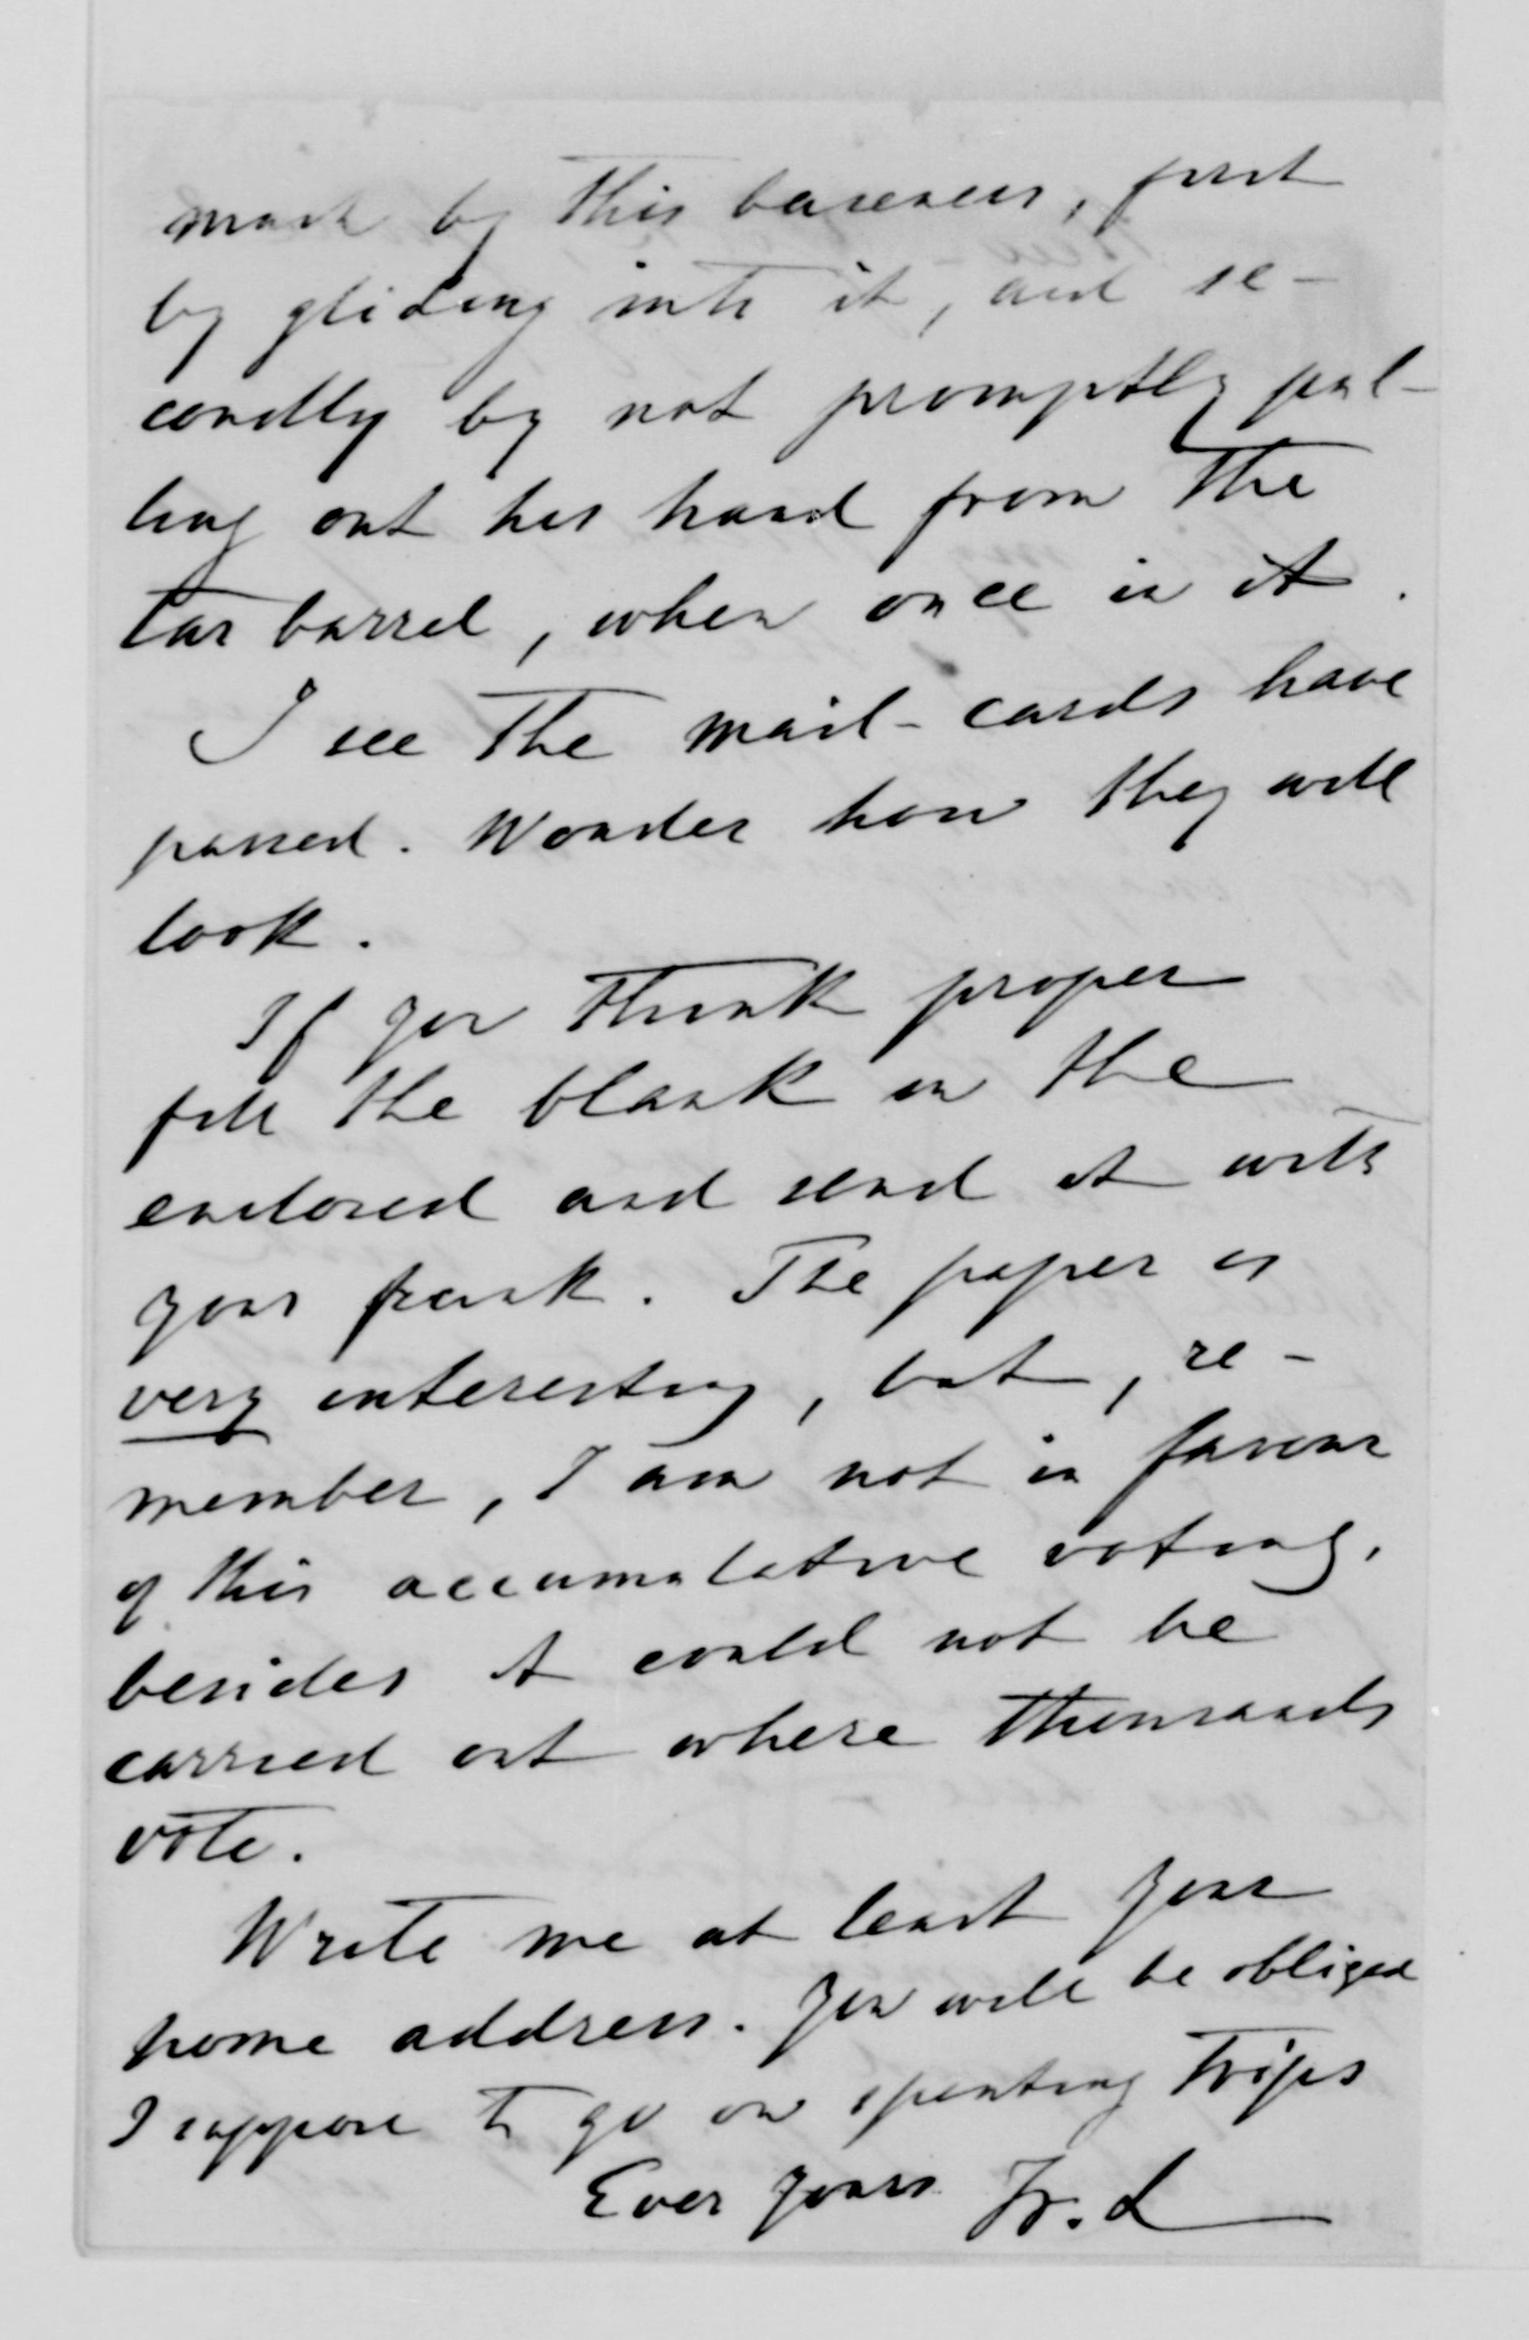 much by this business, first
by gliding into it, and se-
condly by not promptly pul-
ling out his hand from the
tar barrel, when once in it.
I see the mail-cards have
passed. Wonder how they will
look.
If you think proper
fill the blank in the
enclosed and send it with
your frank. The paper is
very interesting, but, re-
member, I am not in favour
of this accumulative voting,
besides it could not be
carried out where thousands
vote.
Write me at least your
home address. You will be obliged
I suppose to go on spouting trips
Ever yours Fr. L